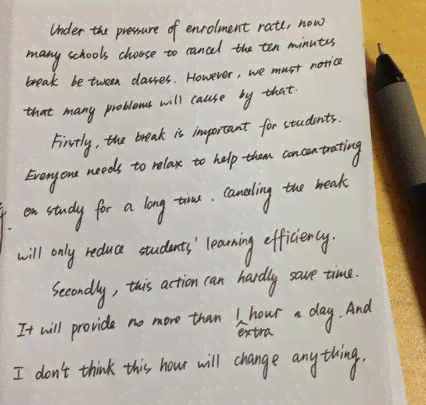 Under the pressure of enrolment rate, now
many schools choose to cancel the ten minutes
break be tween classes. However, we must notice
that many problems will cause by that.
Firstly, the break is important for students.
Everyone needs to relax to help them concentrating
on study for a long time. Canceling the break
will only reduce students' learning efficiency.
Secondly, this action can hardly save time.
It will provide no more than 1 extra hour a day. And
I don't think this hour will change anything.